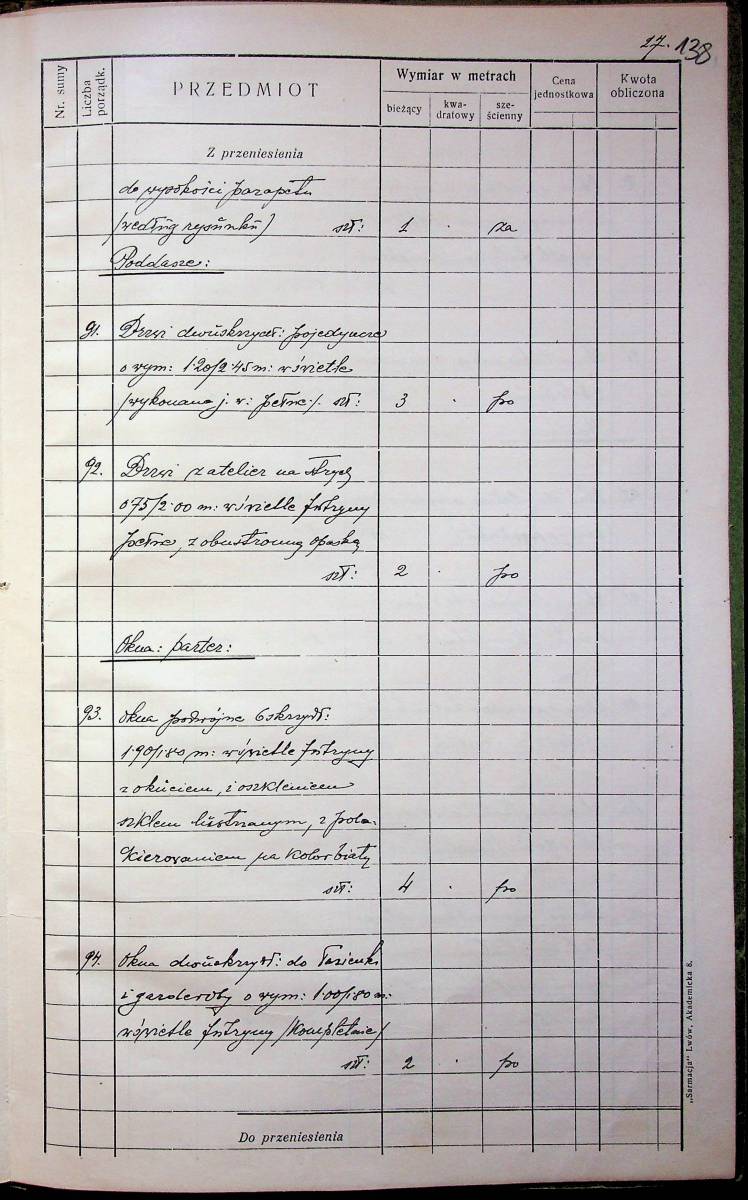 17. 138
Nr. sumy
Liczba porządk.
PRZEDMIOT
Wymiar w metrach
bieżący
kwa-
dratowy
sze-
ścienny
Cena
jednostkowa
Kwota
obliczona
Z przeniesienia
do wysokości parapetu
/według rysunku/ szt: 1 · za
Poddasze:
91. Drzwi dwuskrzydł: pojedyncze
o wym: 1·20/2·45 m: w świetle
/wykonane j. w: pełne/. szt: 3 · po
92. Drzwi z atelier na strych
075/2·00 m: w świetle futryny
pełne, z obustronną opaską
szt: 2 · po
Okna: parter:
93. Okna podwójne 6 skrzydł:
1·90/1·80 m: w świetle futryny
z okuciem, i oszkleniem
szklem lustrzanym, z pola-
kierowaniem na kolor biały
szt: 4 · po
94. Okna dwuskrzydł: do łazienki
i garderoby o wym: 1·00/1·80 m:
w świetle futryny /kompletnie/
szt: 2 · po
Do przeniesienia
„Sarmacja" Lwów, Akademicka 8.